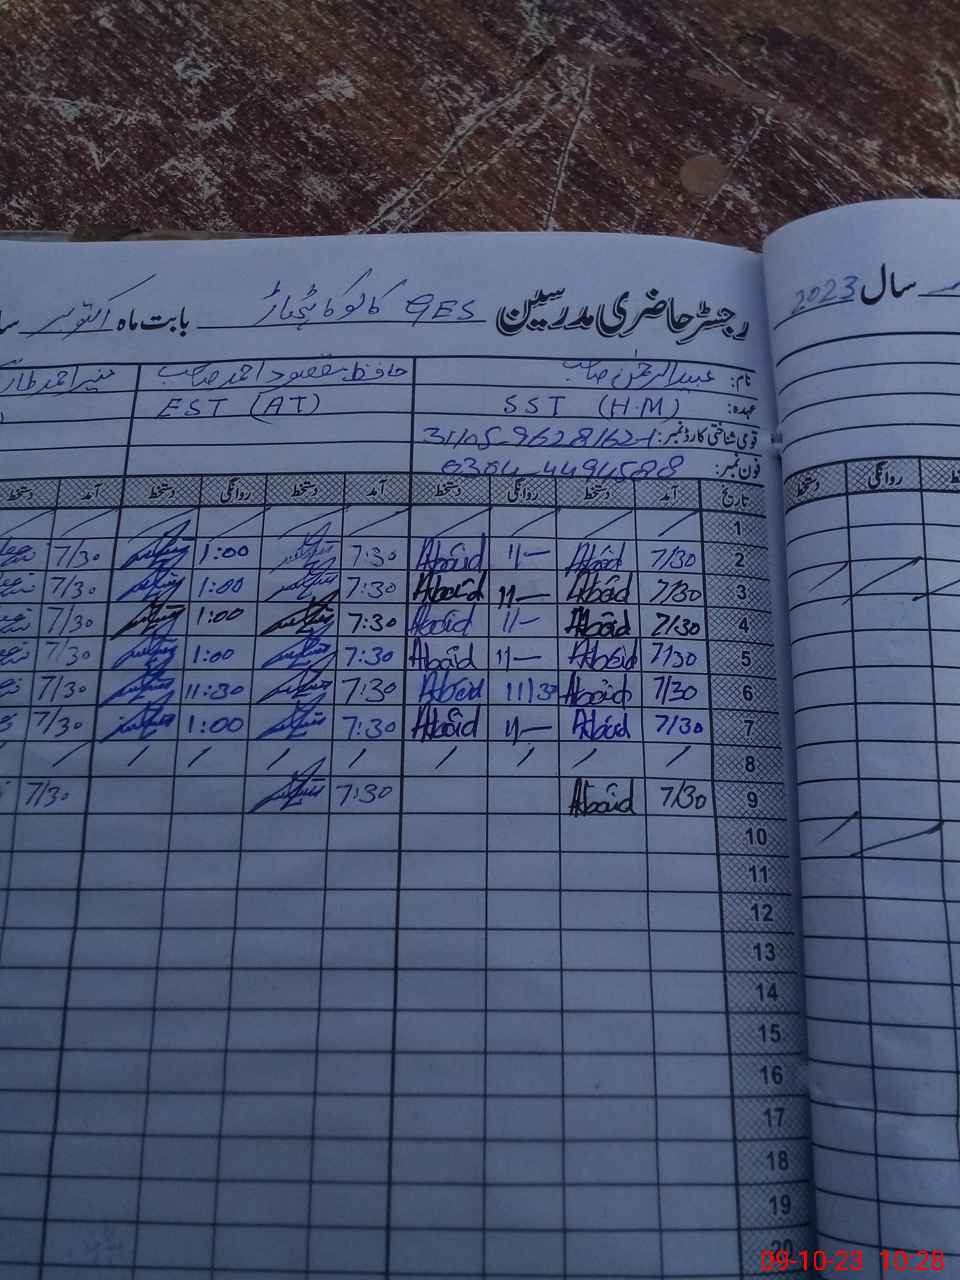 رجسٹر حاضری مدرسین GES بابت ماہ اکتوبر
سال 2023
نام: عبیدالرحمٰن صاحب حافظ مقصود احمد صاحب منیر احمد
عہدہ: SST (H.M) EST (AT)
قومی شناختی کارڈ نمبر:
فون نمبر:
تاریخ آمد دستخط روانگی دستخط آمد دستخط روانگی دستخط آمد دستخط
دستخط روانگی
1
2 7/30 Aboid 11— Aboid 7:30 1:00 7/30
3 7/30 Aboid 11— Aboid 7:30 1:00 7/30
4 7/30 Aboid 11— Aboid 7:30 1:00 7/30
5 7/30 Aboid 11— Aboid 7:30 1:00 7/30
6 7/30 Aboid 11/30 Aboid 7:30 11:30 7/30
7 7/30 Aboid 11— Aboid 7:30 1:00 7/30
8
9 7/30 Aboid 7:30 7/30
10
11
12
13
14
15
16
17
18
19
20
09-10-23 10:28